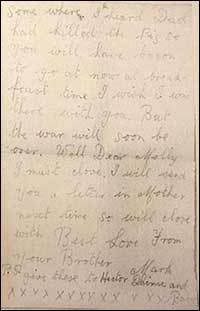 some where I heard Dad
had killed the Pig so
you will have bacon
to go at now at break-
fast time I wish I was
there with you. But
the war will soon be
over. Well Dear Molly
I must close. I will send
you a letter in Mother
next time so will close
with Best Love From
your Brother Mark
P.S give these to Hector and
x x x x x x x x x x x